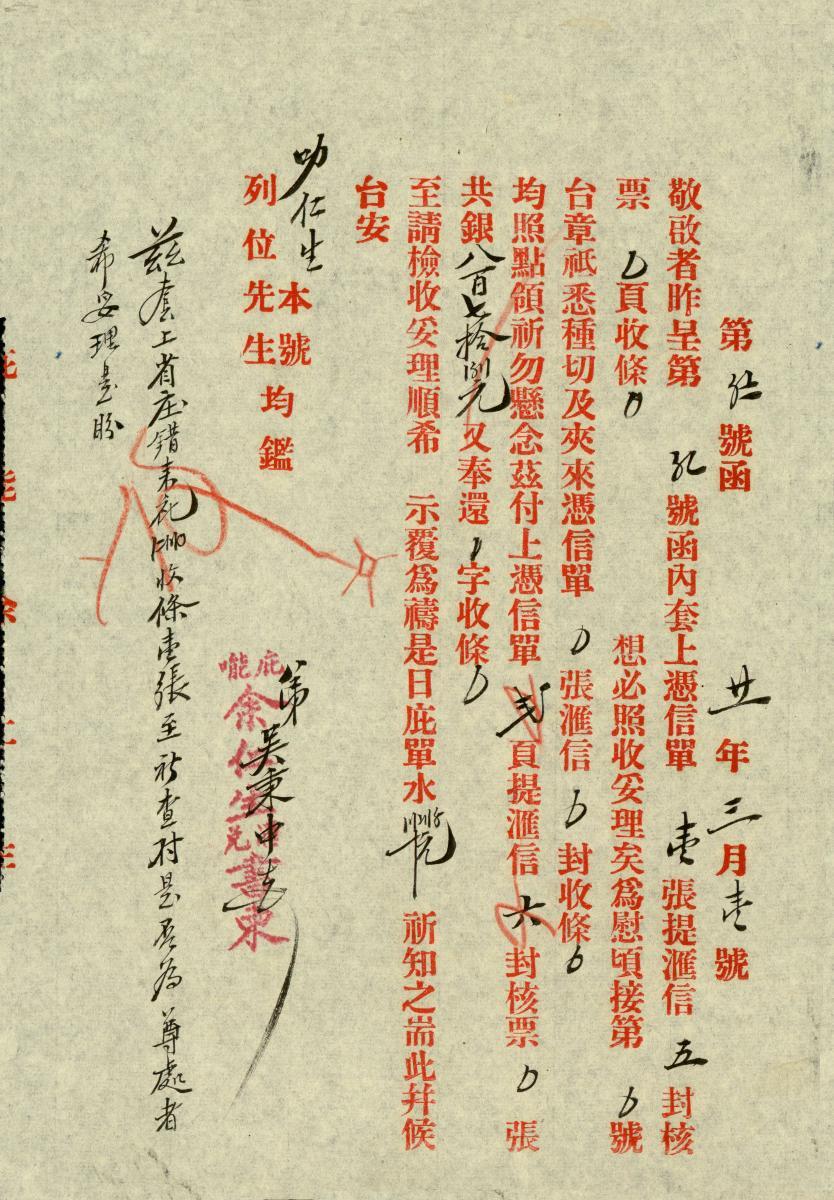 第 號函 廿年三月壹號
敬啟者昨呈第 號函內套上憑信單壹張提滙信五封核
票 頁收條 想必照收妥理矣為慰頃接第 號
台章祇悉種切及夾來憑信單 張滙信 封收條
均照點領祈勿懸念茲付上憑信單弍頁提滙信六封核票 張
共銀八百七拾 元又奉還 字收條
至請檢收妥理順希 示覆為禱是日庇單水 祈知之耑此幷候
台安
叻仁生本號
列位先生均鑑
庇能
余仁生 兌書柬
弟吳秉申
茲套上省庄錯來 收條壹張至祈查村是否為尊處者
希妥理是盼